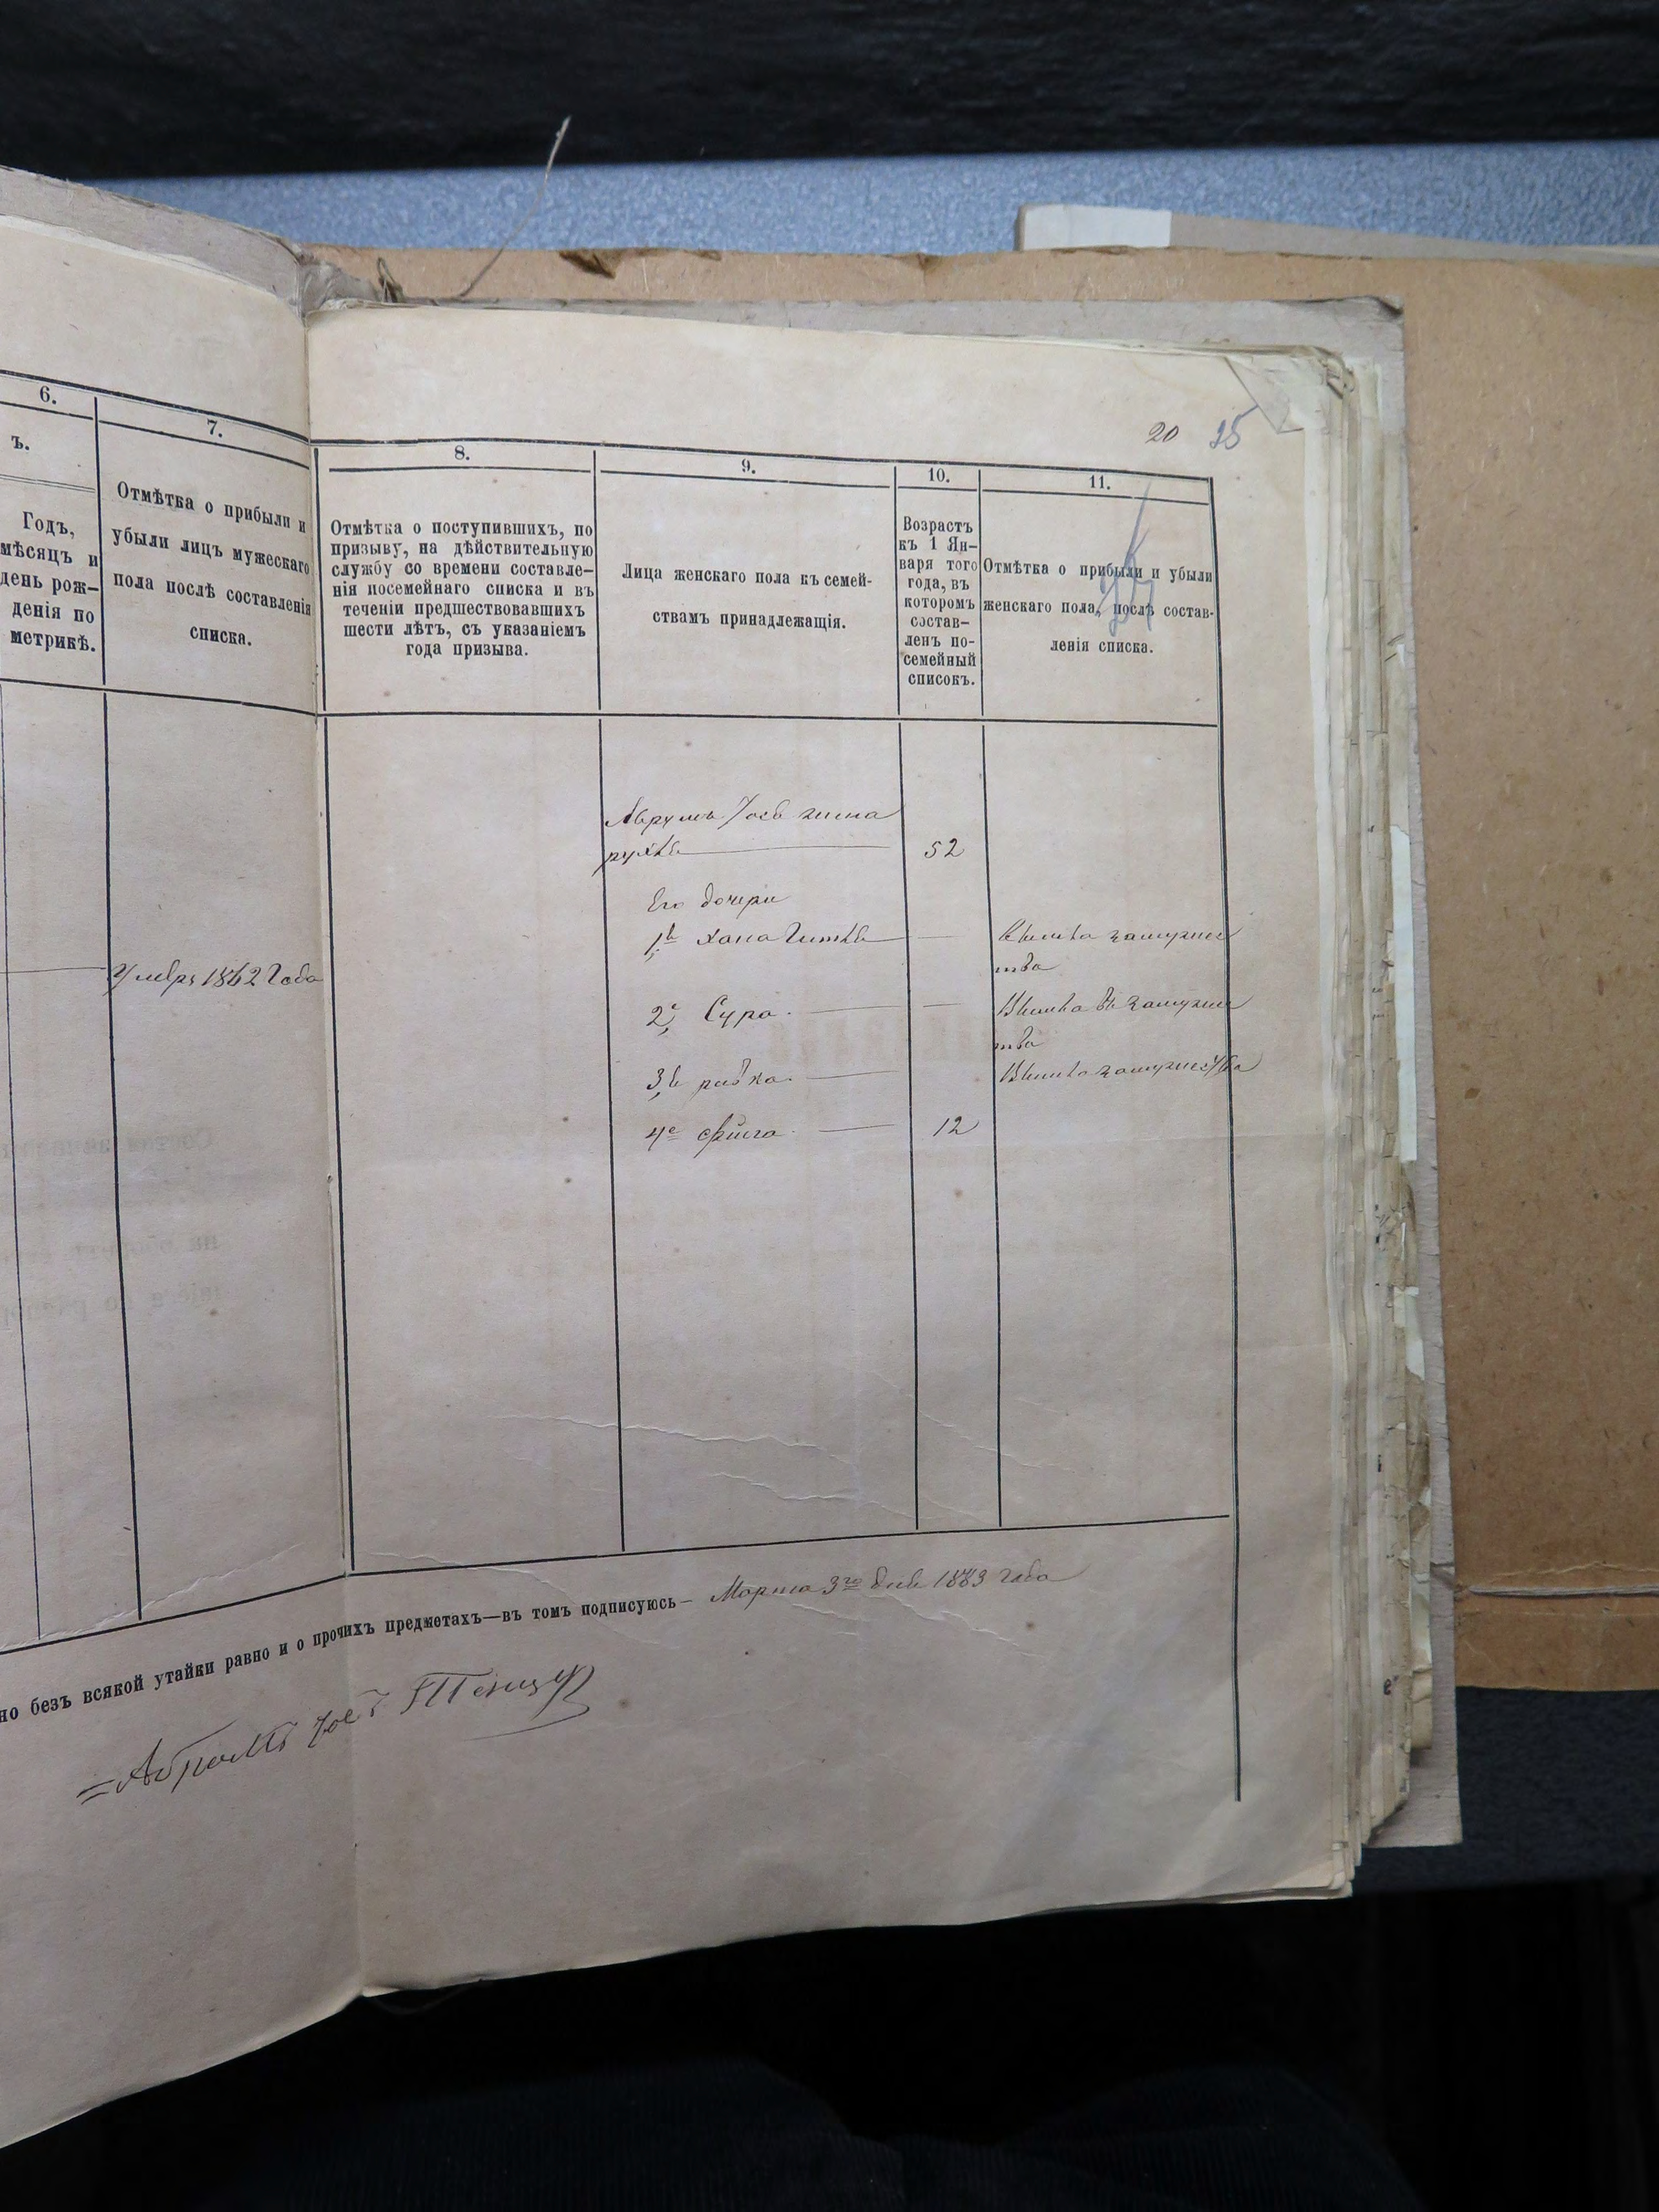 20 25
6.
7.
8.
9.
10.
11.
ъ.
Годъ,
мѣсяцъ и
день рож-
денія по
метрикѣ.
Отмѣтка о прибыли и
убыли лицъ мужескаго
пола послѣ составленія
списка.
Отмѣтка о поступившихъ, по
призыву, на дѣйствительную
службу со времени составле-
нія посемейнаго списка и въ
теченіи предшествовавшихъ
шести лѣтъ, съ указаніемъ
года призыва.
Лица женскаго пола къ семей-
ствамъ принадлежащія.
Возрастъ
къ 1 Ян-
варя того
года, въ
которомъ
состав-
ленъ по-
семейный
списокъ.
Отмѣтка о прибыли и убыли
женскаго пола, послѣ состав-
ленія списка.
Аврумъ Іось жина
52
Его дочери
1ь Хана Гитля
Вишла замужес
тва
Умеръ 1862 Года
2е Сура
Вишла въ замужес
тва
3ь ривка
Вишла замужества
4е фрига 12
но безъ всякой утайки равно и о прочихъ предметахъ—въ томъ подписуюсь— Марта 3го дня 1883 года